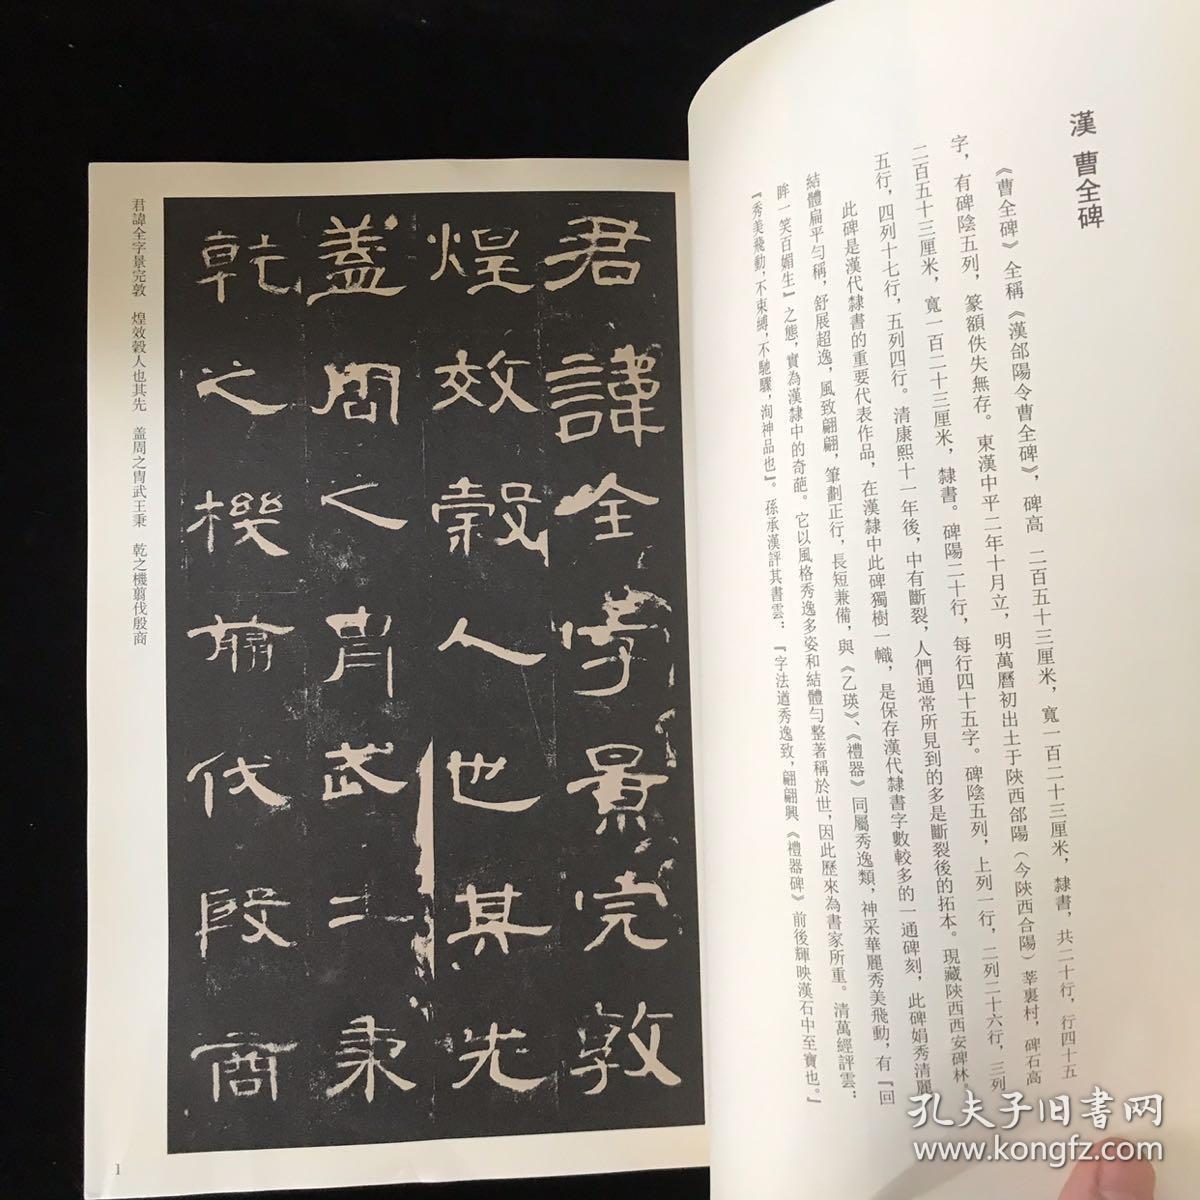 漢 曹全碑
《曹全碑》全稱《漢郃陽令曹全碑》，碑高 二百五十三厘米，寬一百二十三厘米，隸書，共二十行，行四十五
字，有碑陰五列，篆額佚失無存。東漢中平二年十月立，明萬曆初出土于陝西郃陽（今陝西合陽）莘裏村，碑石高
二百五十三厘米，寬一百二十三厘米，隸書。碑陽二十行，每行四十五字。碑陰五列，上列一行，二列二十六行，三列
五行，四列十七行，五列四行。清康熙十一年後，中有斷裂，人們通常所見到的多是斷裂後的拓本。現藏陝西西安碑林。
此碑是漢代隸書的重要代表作品，在漢隸中此碑獨樹一幟，是保存漢代隸書字數較多的一通碑刻，此碑娟秀清麗
結體扁平勻稱，舒展超逸，風致翩翩，筆劃正行，長短兼備，與《乙瑛》、《禮器》同屬秀逸類，神采華麗秀美飛動，有『回
眸一笑百媚生』之態，實為漢隸中的奇葩。它以風格秀逸多姿和結體勻整著稱於世，因此歷來為書家所重。清萬經評雲：
『秀美飛動，不束縛，不馳驟，洵神品也』。孫承漢評其書雲：『字法遒秀逸致，翩翩興《禮器碑》前後輝映漢石中至寶也。』
君諱全字景完敦
煌效穀人也其先
蓋周之胄武王秉
乾之機翦伐殷商
君諱全字景完敦 煌效穀人也其先 盖周之胄武王秉 乾之機翦伐殷商
1
孔夫子旧书网
www.kongfz.com